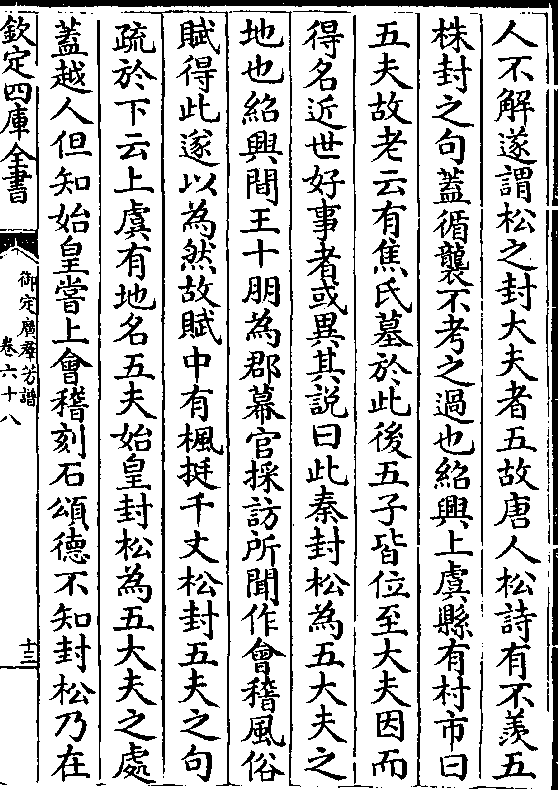 人不解遂謂松之封大夫者五故唐人松詩有不羨五
株封之句蓋循襲不考之過也紹興上虞縣有村市曰
五夫故老云有焦氏墓於此後五子皆位至大夫因而
得名近世好事者或異其說曰此秦封松為五大夫之
地也紹興間王十朋為郡幕官採訪所聞作會稽風俗
賦得此遂以為然故賦中有楓挺千丈松封五夫之句
疏於下云上虞有地名五夫始皇封松為五大夫之處
蓋越人但知始皇嘗上會稽刻石頌德不知封松乃在
欽定四庫全書
御定廣羣芳譜
卷六十八
十三